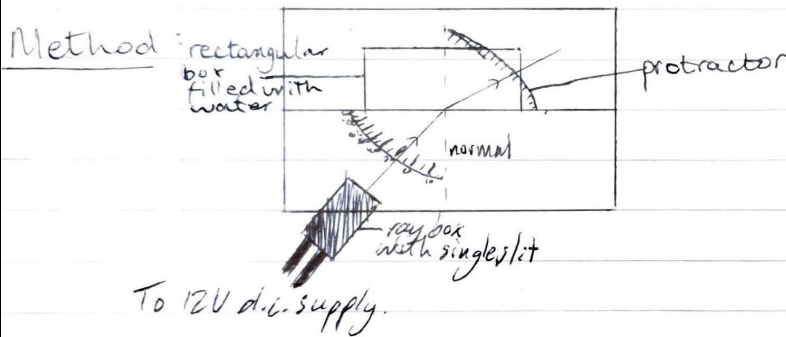 Method : rectangular
box
filled with
water
protractor
normal
ray box
with single slit
To 12V d.c. supply.